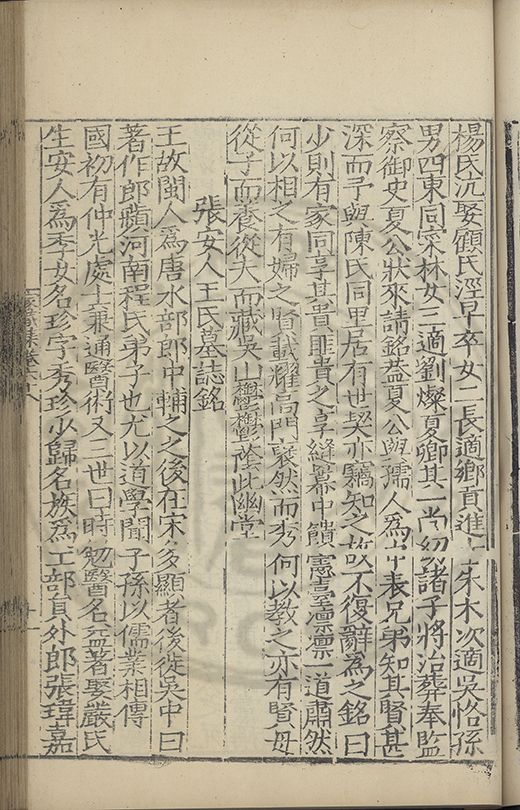 楊氏沉娶顧氏涇早卒女二長適鄉貢進士宋木次適吳恪孫
男四東同寀林女三適劉燦夏卿其一尚幼諸子將治葬奉監
察御史夏公狀來請銘蓋夏公與孺人為中表兄弟知其賢甚
深而予與陳氏同里居有世契亦竊知之故不復辭為之銘曰
少則有家同享其貴匪貴之享縫冪中饋憲臺凜凜一道肅然
何以相之有婦之賢載耀高門裒然而秀何以教之亦有賢母
從子而養從夫而藏吳山鬱鬱蔭此幽堂
張安人王氏墓誌銘
王故閩人為唐水部郎中輔之之後在宋多顯者後徙吳中曰
著作郎蘋河南程氏弟子也尤以道學聞子孫以儒業相傳
國初有仲光處士兼通醫術又二世曰時勉醫名益著娶嚴氏
生安人為季女名珍字秀珍少歸名族為工部員外郎張瑋嘉